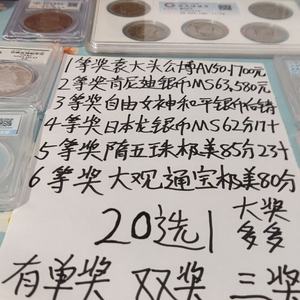 1等奖袁大头公博AU50.1700元
2等奖肯尼迪银币MS63,580元
3等奖自由女神和平银币
4等奖日本龙银币MS62分17+
5等奖隋五珠极美85分23+
6等奖大观通宝极美80分
20选1
大奖
多多
有单奖 双奖 三奖